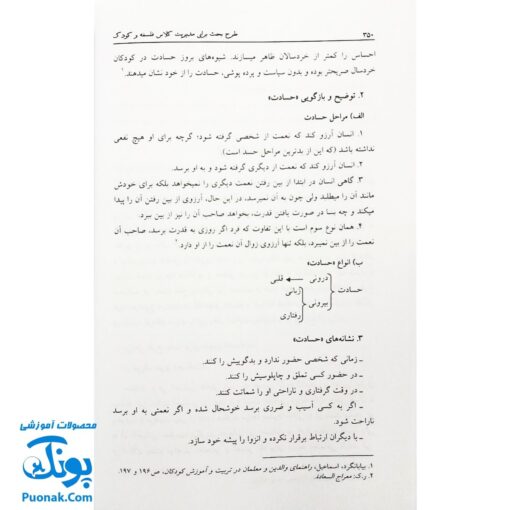 ۳۵۰ طرح بحث برای مدیریت کلاس فلسفه و کودک
احساس را کمتر از خردسالان ظاهر میسازند. شیوه‌های بروز حسادت در کودکان
خردسال صریحتر بوده و بدون سیاست و پرده پوشی، حسادت را از خود نشان میدهند.۱
۲. توضیح و بازگویی «حسادت»
الف) مراحل حسادت
۱. انسان آرزو کند که نعمت از شخصی گرفته شود؛ گرچه برای او هیچ نفعی
نداشته باشد (که این از بدترین مراحل حسد است).
۲. انسان آرزو کند که نعمت از دیگری گرفته شود و به او برسد.
۳. گاهی انسان در ابتدا از بین رفتن نعمت دیگری را نمیخواهد بلکه برای خودش
مانند آن را میطلبد ولی چون به آن نمیرسد، در این حال، آرزوی از بین رفتن آن را پیدا
میکند و چه بسا در صورت یافتن قدرت، بخواهد صاحب آن را نیز از بین ببرد.
۴. همان نوع سوم است با این تفاوت که فرد اگر روزی به قدرت برسد، صاحب آن
نعمت را از بین نمیبرد، بلکه تنها آرزوی زوال آن نعمت را از او دارد.۲
ب) انواع «حسادت»
درونی ← قلبی
حسادت
زبانی
بیرونی
رفتاری
۳. نشانه‌های «حسادت»
ـ زمانی که شخصی حضور ندارد و بدگوییش را کنند.
ـ در حضور کسی تملق و چاپلوسیش را کنند.
ـ در وقت گرفتاری و ناراحتی او را شماتت کنند.
ـ اگر به کسی آسیب و ضرری برسد خوشحال شده و اگر نعمتی به او برسد
ناراحت شود.
ـ با دیگران ارتباط برقرار نکرده و انزوا را پیشه خود سازد.
۱. بیابانگرد، اسماعیل، راهنمای والدین و معلمان در تربیت و آموزش کودکان، ص ۱۹۶ و ۱۹۷.
۲. ر.ک: معراج السعادة.
محصولات آموزشی
پونک
Puonak.Com